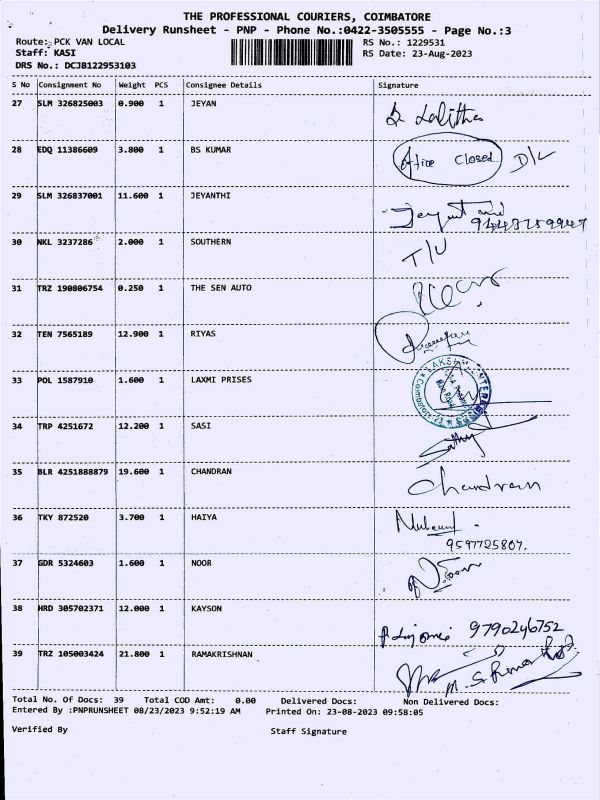 THE PROFESSIONAL COURIERS, COIMBATORE
Delivery Runsheet - PNP - Phone No.:0422-3505555 - Page No.:3
Route: PCK VAN LOCAL RS No.: 1229531
Staff: KASI RS Date: 23-Aug-2023
DRS No.: DCJB122953103
S No Consignment No Weight PCS Consignee Details Signature
27 SLM 326825003 0.900 1 JEYAN Lalitha
28 EDQ 11386609 3.800 1 BS KUMAR Office Closed D/L
29 SLM 326837001 11.600 1 JEYANTHI
30 NKL 3237286 2.000 1 SOUTHERN T/U
31 TRZ 190806754 0.250 1 THE SEN AUTO
32 TEN 7565189 12.900 1 RIYAS
33 POL 1587910 1.600 1 LAXMI PRISES
34 TRP 4251672 12.200 1 SASI Sathy
35 BLR 4251888879 19.600 1 CHANDRAN Chandran
36 TKY 872520 3.700 1 HAIYA
9597725807.
37 GDR 5324603 1.600 1 NOOR Noor
38 HRD 305702371 12.000 1 KAYSON 9790246752
39 TRZ 105003424 21.800 1 RAMAKRISHNAN
Total No. Of Docs: 39 Total COD Amt: 0.00 Delivered Docs: Non Delivered Docs:
Entered By :PNPRUNSHEET 08/23/2023 9:52:19 AM Printed On: 23-08-2023 09:58:05
Verified By Staff Signature